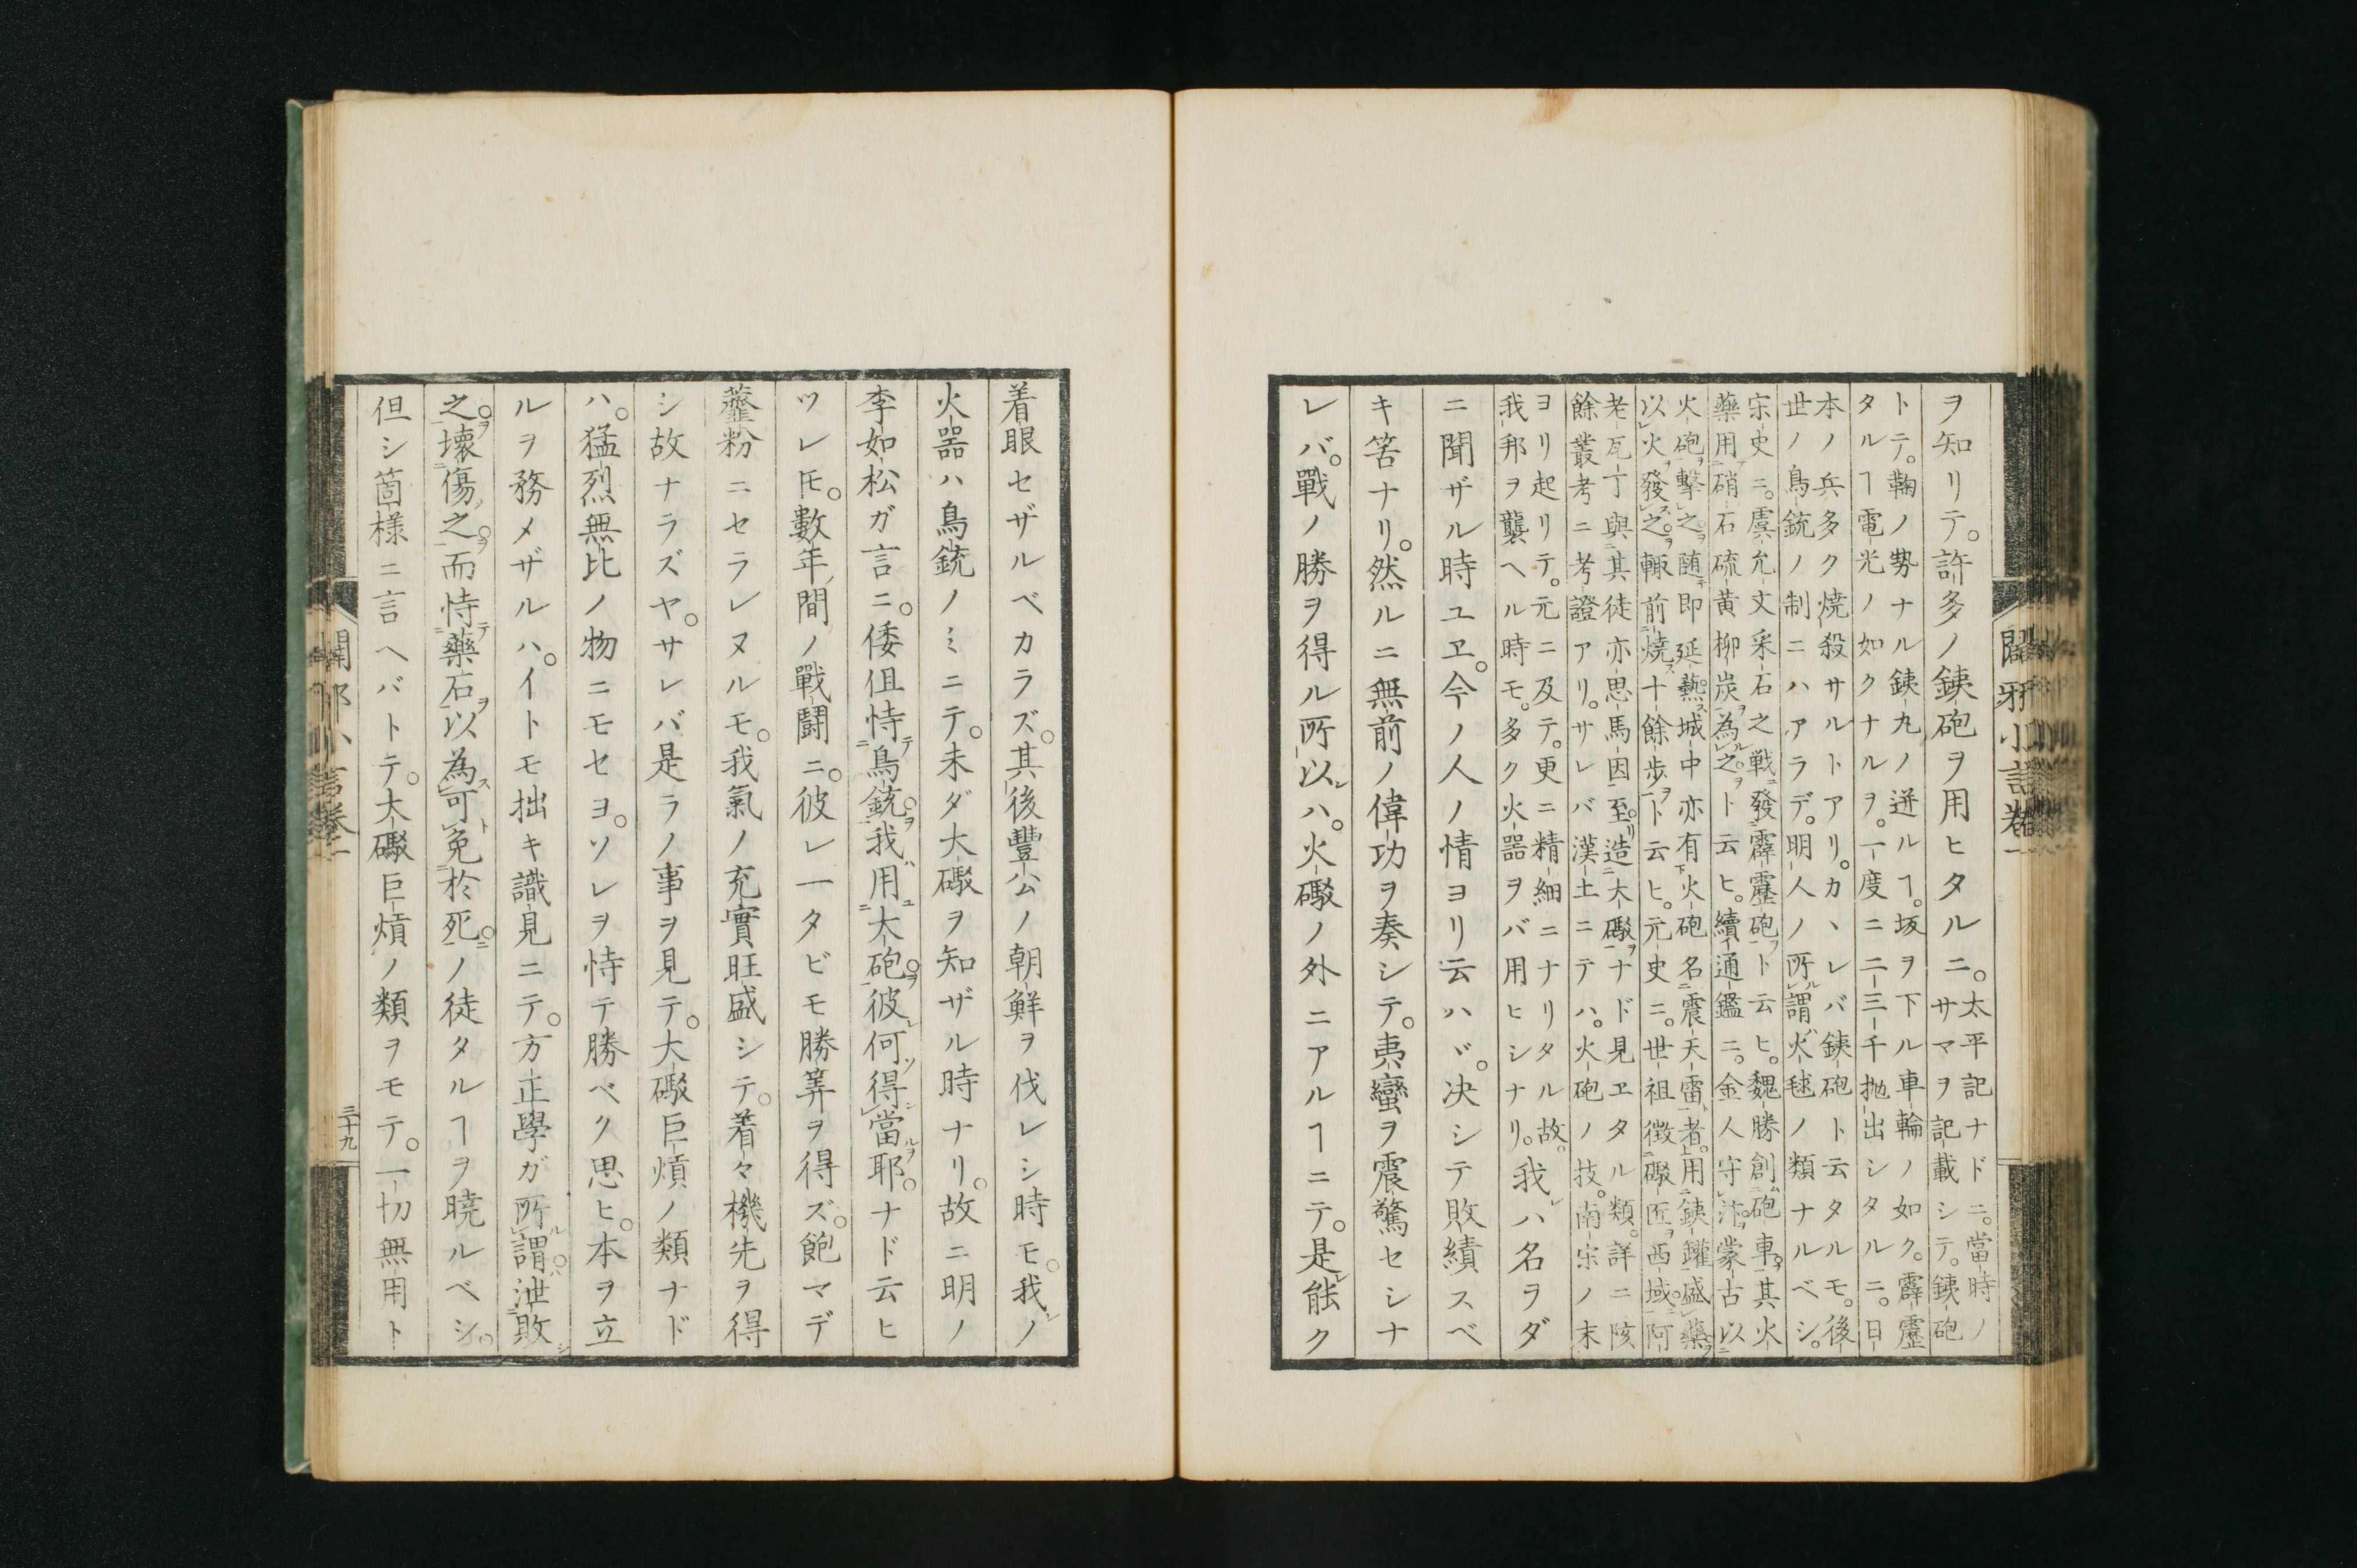 闢邪小言卷一
ヲ知リテ。許多ノ鉄砲ヲ用ヒタルニ。
太平記ナドニ。當時ノ
サマヲ記載シテ。鉄砲
トテ。鞠ノ勢ナル鉄丸ノ迸ルヿ。坂ヲ下ル車輪ノ如ク。霹靂
タルヿ電光ノ如クナルヲ。一度ニ二三千抛出シタルニ。日
本ノ兵多ク燒殺サルトアリ。カヽレバ鉄砲ト云タルモ。後
世ノ鳥銃ノ制ニハアラデ。明人ノ所謂火毬ノ類ナルベシ。
宋史ニ。虞允文采石之戰發霹靂砲ヲト云ヒ。魏勝創砲車其火
藥用硝石硫黃柳炭為之ト云ヒ。續通鑑ニ。金人守汴蒙古以
火砲擊之随即延爇城中亦有火砲名震天雷者。用鉄鑵盛藥
以火發之輙前燒十餘步ト云ヒ。元史ニ。世祖徵礮匠西域阿
老瓦丁與其徒亦思馬因至。造大礮ナド見ヱタル類。詳ニ陔
餘叢考ニ考證アリ。サレバ漢土ニテハ。火砲ノ技。南宋ノ末
ヨリ起リテ。元ニ及テ。更ニ精細ニナリタル故。
我邦ヲ襲ヘル時モ。多ク火器ヲバ用ヒシナリ。
我レハ名ヲダ
ニ聞ザル時ユヱ。今ノ人ノ情ヨリ云ハヾ。決シテ敗績スベ
キ筈ナリ。然ルニ無前ノ偉功ヲ奏シテ。夷蠻ヲ震驚セシナ
レバ。戰ノ勝ヲ得ル所以ハ。火礮ノ外ニアルヿニテ。是レ能ク
着眼セザルベカラズ。其後豐公ノ朝鮮ヲ伐レシ時モ。我レノ
火器ハ鳥銃ノミニテ。未ダ大礮ヲ知ザル時ナリ。故ニ明ノ
李如松ガ言ニ。倭但恃鳥銃我用大砲彼何得當耶。ナド云ヒ
ツレ𪜈。數年間ノ戰鬪ニ。彼レ一タビモ勝筭ヲ得ズ。飽マデ
虀粉ニセラレヌルモ。我氣ノ充實旺盛シテ。着々機先ヲ得
シ故ナラズヤ。サレバ是ラノ事ヲ見テ。大礮巨熕ノ類ナド
ハ。猛烈無比ノ物ニモセヨ。ソレヲ恃テ勝ベク思ヒ。本ヲ立
ルヲ務メザルハ。イトモ拙キ識見ニテ。方正學ガ所謂泄敗
之壞傷之而恃藥石以為可免於死ノ徒タルヿヲ曉ルベシ。
但シ箇様ニ言ヘバトテ。大礮巨熕ノ類ヲモテ。一切無用ト
闢邪小言卷一
三十九